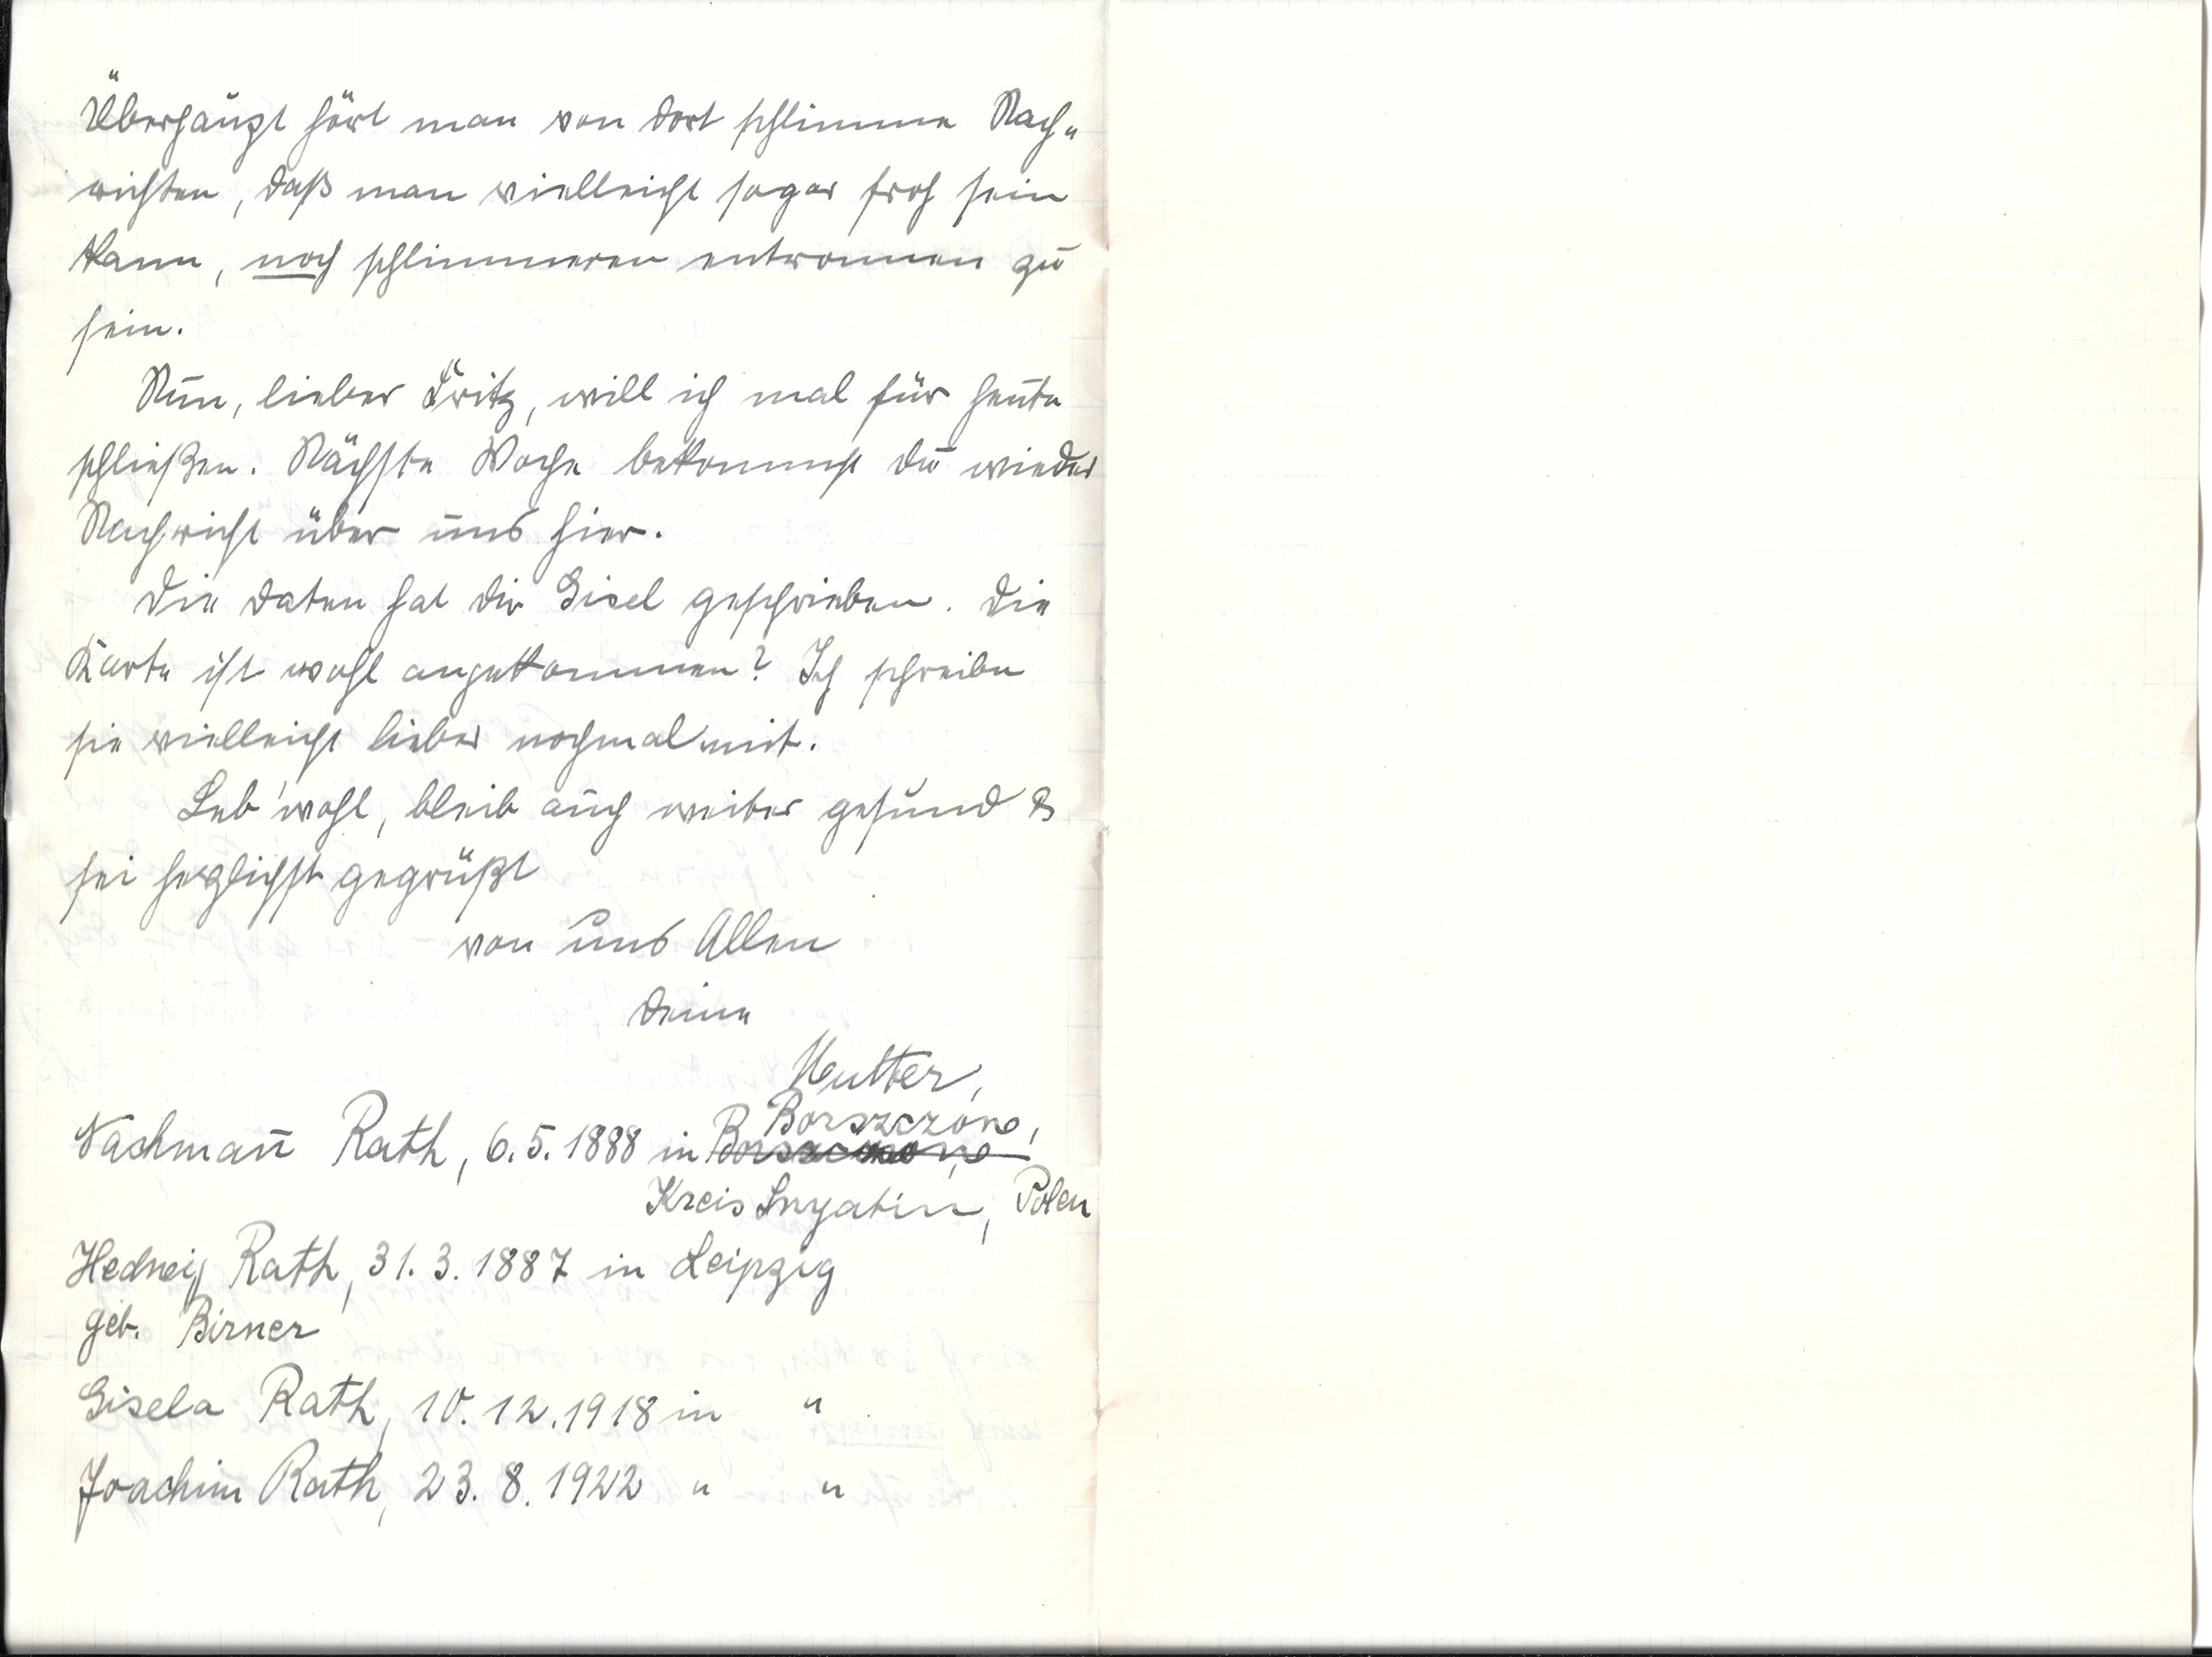 Überhaupt hört man von dort schlimme Nach-
richten, daß man vielleicht sogar froh sein
kann, noch schlimmeren entronnen zu
sein.
Nun, lieber Fritz, will ich mal für heute
schließen. Nächste Woche bekommst du wieder
Nachricht über uns hier.
Die Daten hat dir Gisel geschrieben. Die
Karte ist wohl angekommen? Ich schreibe
sie vielleicht lieber nochmal mit.
Leb' wohl, bleib auch weiter gesund &
sei herzlichst gegrüßt
von uns Allen
Deine
Mutter,
Borszczów,
Nachman̄ Rath, 6.5.1888 in
Kreis Snyatin, Polen
Hedwig Rath, 31.3.1887 in Leipzig
geb. Birner
Gisela Rath, 10.12.1918 in "
Joachim Rath, 23.8.1922 " "